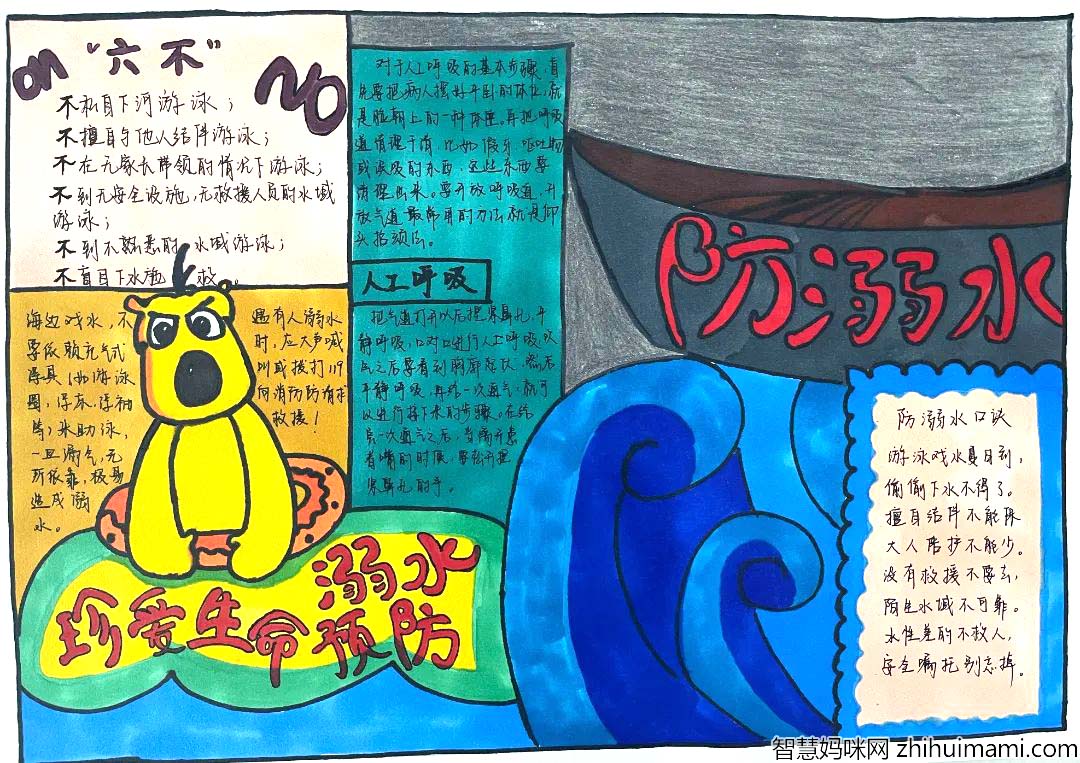 on
“六不”
NO
不私自下河游泳；
不擅自与他人结伴游泳；
不在无家长带领的情况下游泳；
不到无安全设施，无救援人员的水域
游泳；
不到不熟悉的水域游泳；
不盲目下水施救。
对于人工呼吸的基本步骤，首
先要把病人摆好平卧的体位，就
是脸朝上的一种体位，再把呼吸
道清理干净，比如假牙，呕吐物
或误吸的东西，这些东西要
清理出来。要开放呼吸道，开
放气道最常用的方法就是仰
头抬颏法。
人工呼吸
把气道打开以后捏紧鼻孔，平
静呼吸，口对口进行人工呼吸，吹
气之后要看到胸廓起伏，然后
平静呼吸，再给一次通气，就可
以进行接下来的步骤。在给
完一次通气之后，当离开患
者嘴的时候，要松开捏
紧鼻孔的手。
海边戏水，不
要依赖充气式
浮具（如游泳
圈，浮床，浮袖
等）来助泳，
一旦漏气，无
所依靠，极易
造成溺
水。
遇有人溺水
时，应大声喊
叫或拨打119
向消防防请求
救援！
珍爱生命 预防
溺水
防溺水
防溺水口诀
游泳戏水夏日到，
偷偷下水不得了。
擅自结伴不能保
大人陪护不能少。
没有救援不要去，
陌生水域不可靠。
水性差的不救人，
安全嘱托别忘掉。
智慧妈咪网 zhihuimami.com